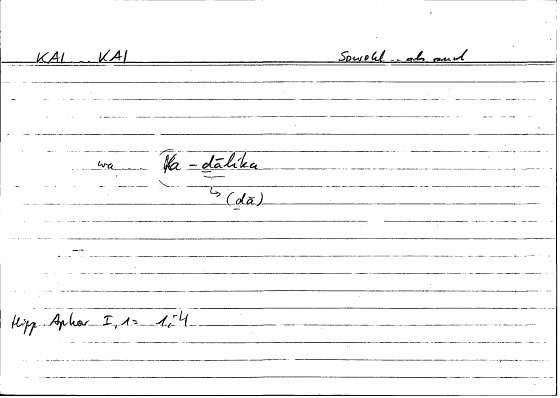 KAI .. KAI Sowohl .. als auch
wa (Ka - ḏālika
↳ (ḏā)
Hipp. Aphor I, 1 = 1,-4